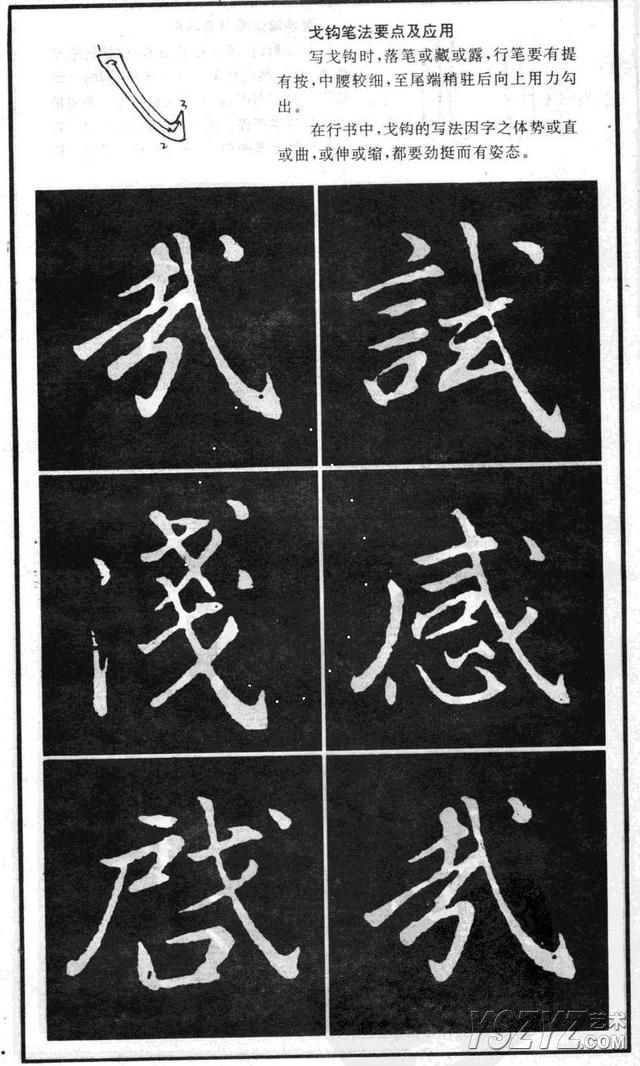 戈钩笔法要点及应用
写戈钩时，落笔或藏或露，行笔要有提
有按，中腰较细，至尾端稍驻后向上用力勾
出。
在行书中，戈钩的写法因字之体势或直
或曲，或伸或缩，都要劲挺而有姿态。
1
3
2
試
哉
感
淺
哉
YSZYZ艺术
.COM